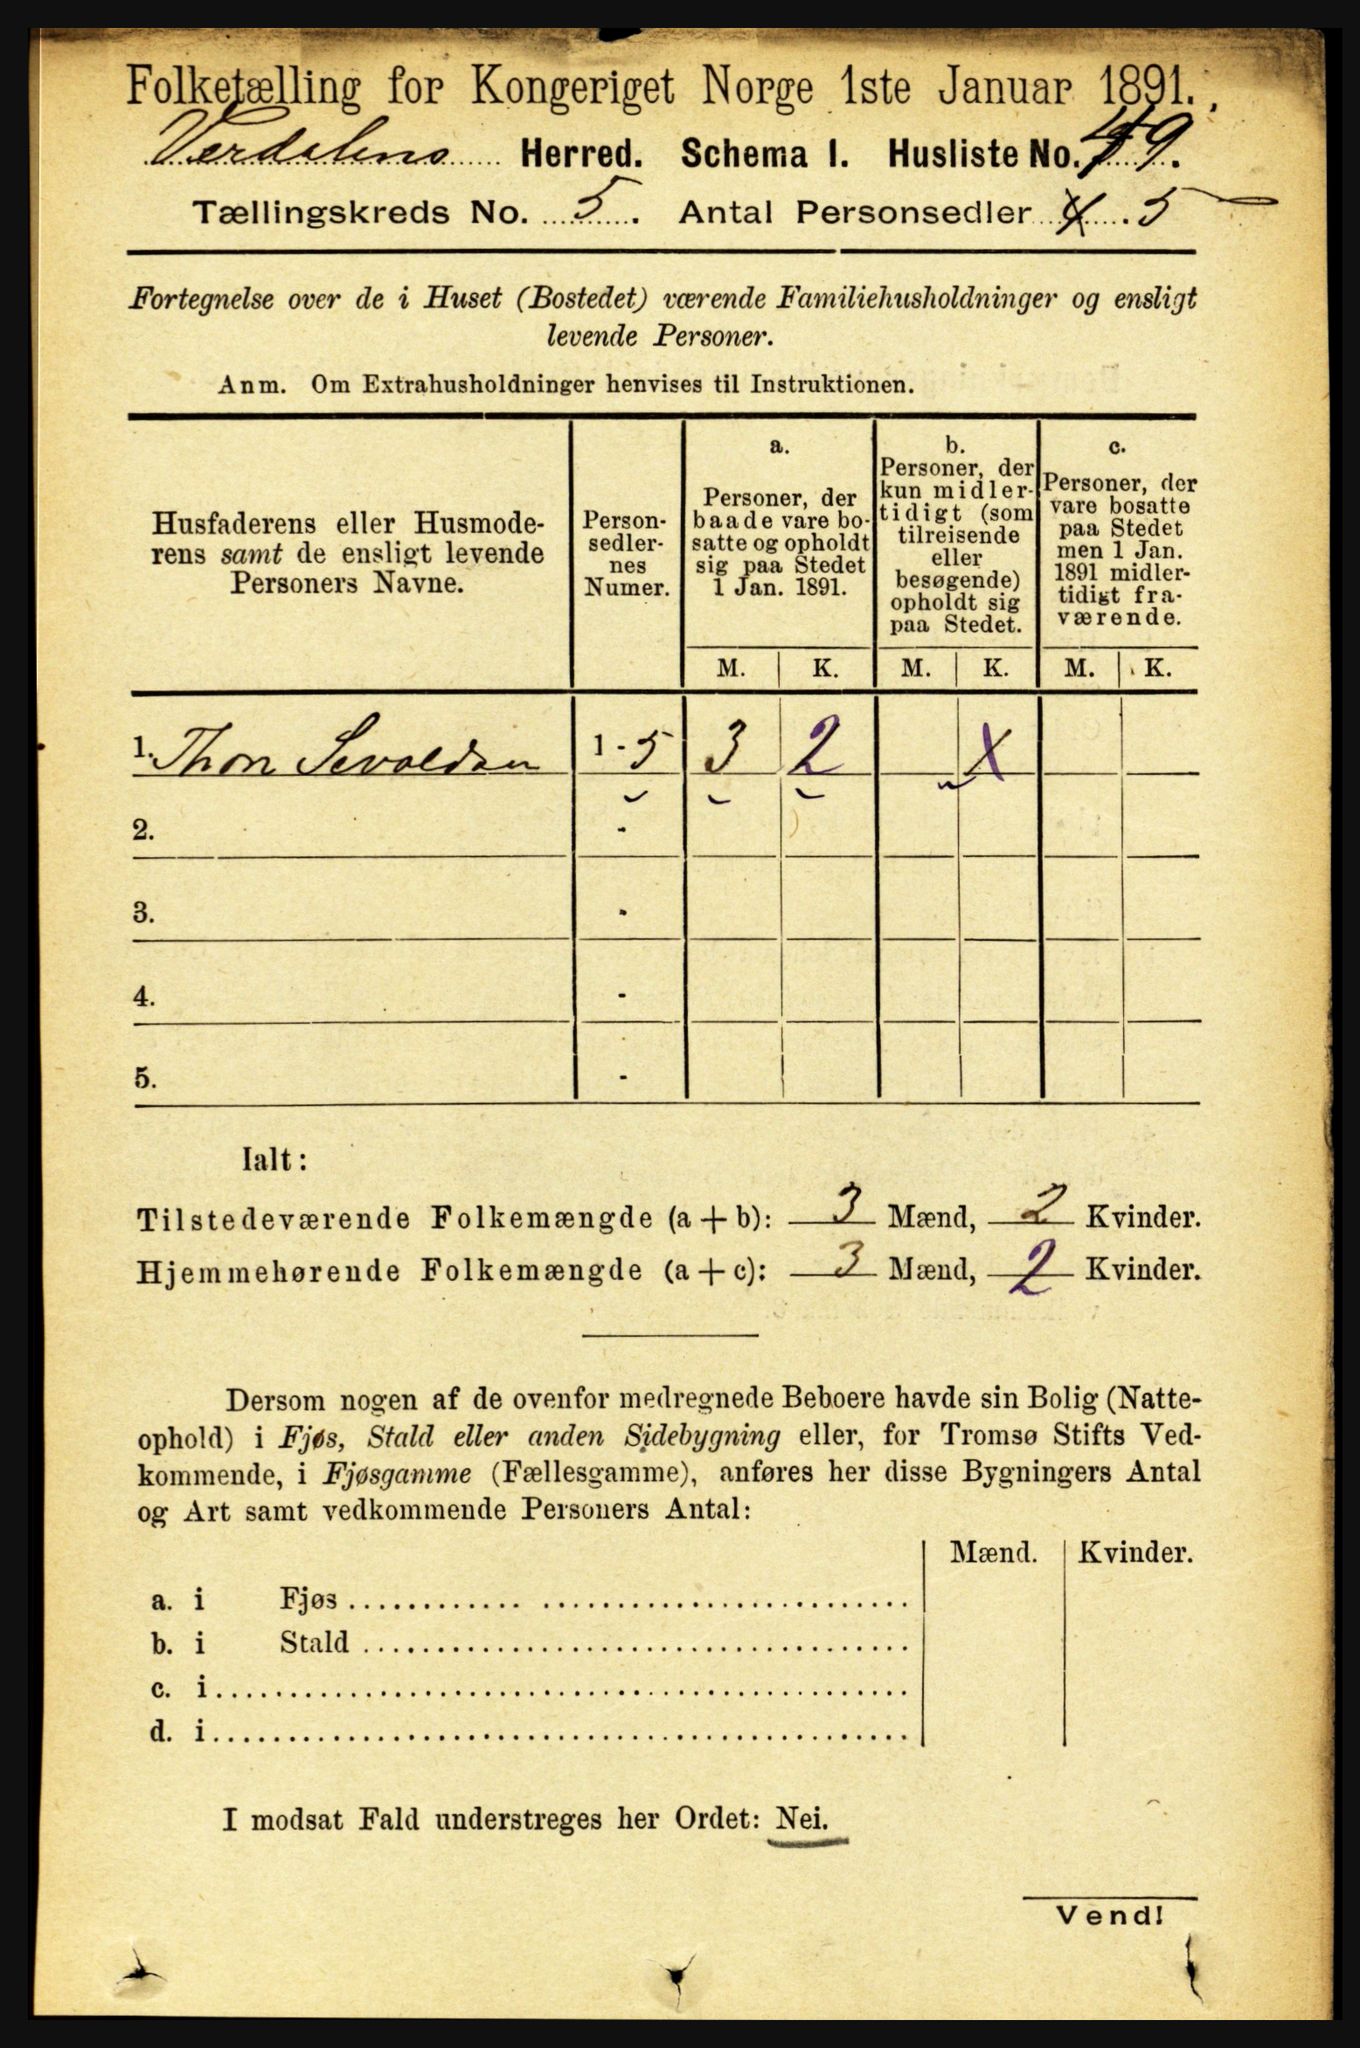 Folketælling for Kongeriget Norge 1ste Januar 1891.
Verdalens Herred. Schema I. Husliste No. 49.
Tællingskreds No. 5. Antal Personsedler 5
Fortegnelse over de i Huset (Bostedet) værende Familiehusholdninger og ensligt
levende Personer.
Anm. Om Extrahusholdninger henvises til Instruktionen.
Husfaderens eller Husmode-
rens samt de ensligt levende
Personers Navne.
Person-
sedler-
nes
Numer.
a.
Personer, der
baade vare bo-
satte og opholdt
sig paa Stedet
1 Jan. 1891.
b.
Personer, der
kun midler-
tidigt (som
tilreisende
eller
besøgende)
opholdt sig
paa Stedet.
c.
Personer, der
vare bosatte
paa Stedet
men 1 Jan.
1891 midler-
tidigt fra-
værende.
M. K. M. K. M. K.
1. Thon Sevaldsen 1 - 5 3 2
2. -
3. -
4. -
5. -
Ialt:
Tilstedeværende Folkemængde (a + b): 3 Mænd, 2 Kvinder.
Hjemmehørende Folkemængde (a + c): 3 Mænd, 2 Kvinder.
Dersom nogen af de ovenfor medregnede Beboere havde sin Bolig (Natte-
ophold) i Fjøs, Stald eller anden Sidebygning eller, for Tromsø Stifts Ved-
kommende, i Fjøsgamme (Fællesgamme), anføres her disse Bygningers Antal
og Art samt vedkommende Personers Antal:
Mænd. Kvinder.
a. i Fjøs
b. i Stald
c. i
d. i
I modsat Fald understreges her Ordet: Nei.
Vend!